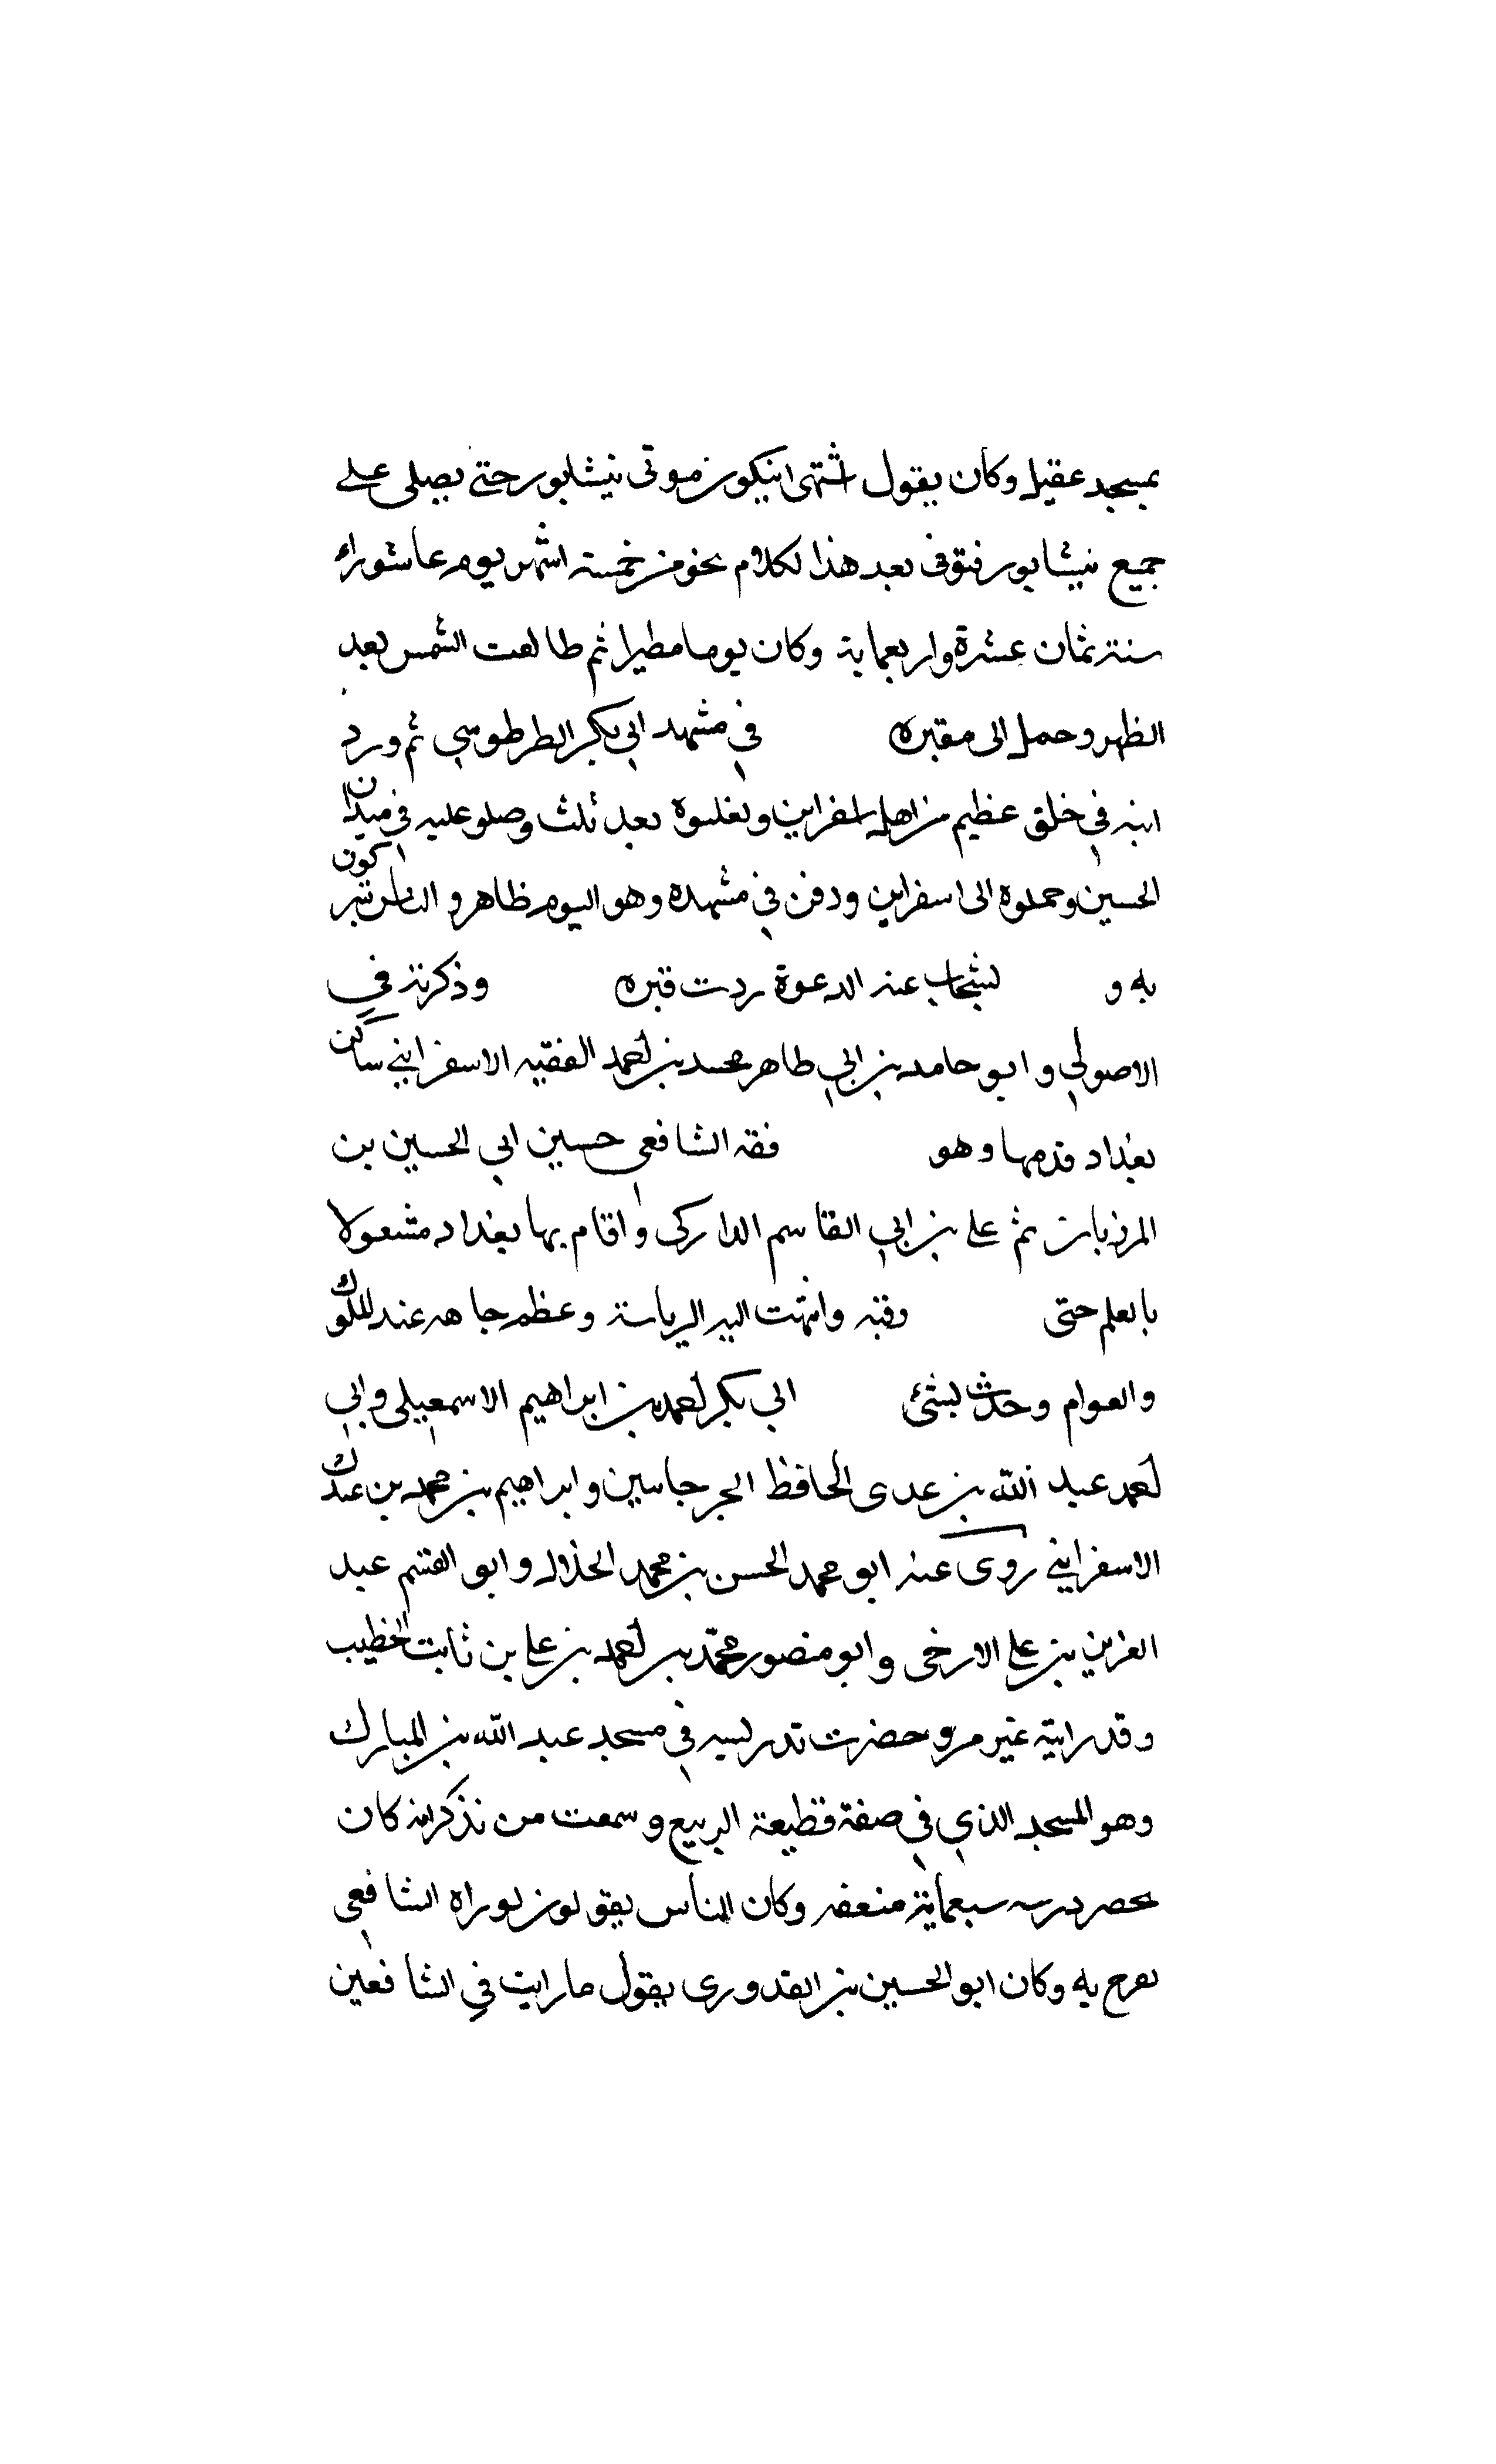 بمسجد عقيل وكان يقول اشتهى ان يكون موتى نيشابور حتى يصلى على
جميع نيشابور فتوفى بعد هذا الكلام بنحو من خمسة اشهر يوم عاشوراء
سنة ثمان عشرة واربعماية وكان يوما مطيرا ثم طالعت الشمس بعد
الظهر وحمل الى مقبره في مشهد ابي بكر الطرطوسي ثم ورد
ابنه في خلق عظيم من اهل اسفراين ونقلوه بعد ثلث وصلو عليه في ميدان
الحسين وحملوه الى اسفراين ودفن في مشهده وهو اليوم ظاهر والناس يتبركون
به و لستجاب عنه الدعوة زرت قبره وذكرته في
الاصولي وابو حامد بن ابي طاهر محمد بن احمد الفقيه الاسفرايني ساكن
بغداد قدمها وهو فقه الشافعي حسين ابي الحسين بن
المرزبان ثم على بن ابي القاسم الداركى واقام بها ببغداد مشعولا
بالعلم حتى وقته وانتهت اليه الرياسة وعظم جاهه عند الملوك
والعوام وحدث لبشئ ابي بكر احمد بن ابراهيم الاسمعيلى وابي
احمد عبد الله بن عدى الحافظ الجرجانيين وابراهيم بن محمد بن عبدك
الاسفرايني روى عنه ابو محمد الحسن بن محمد الخلال وابو القسم عبد
العزيز بن على الازجى وابو منصور محمد بن احمد بن على بن ثابت الخطيب
وقد رايته غير مره وحضرت تدريسه في مسجد عبد الله بن المبارك
وهو المسجد الذي في صفة قطيعة الربيع وسمعت من نذكر انه كان
يحضر درسه سبعماية متفقه وكان الناس يقولون لو راه الشافعي
لفرح به وكان ابو الحسين بن القدورى يقول ما رايت في الشافعين